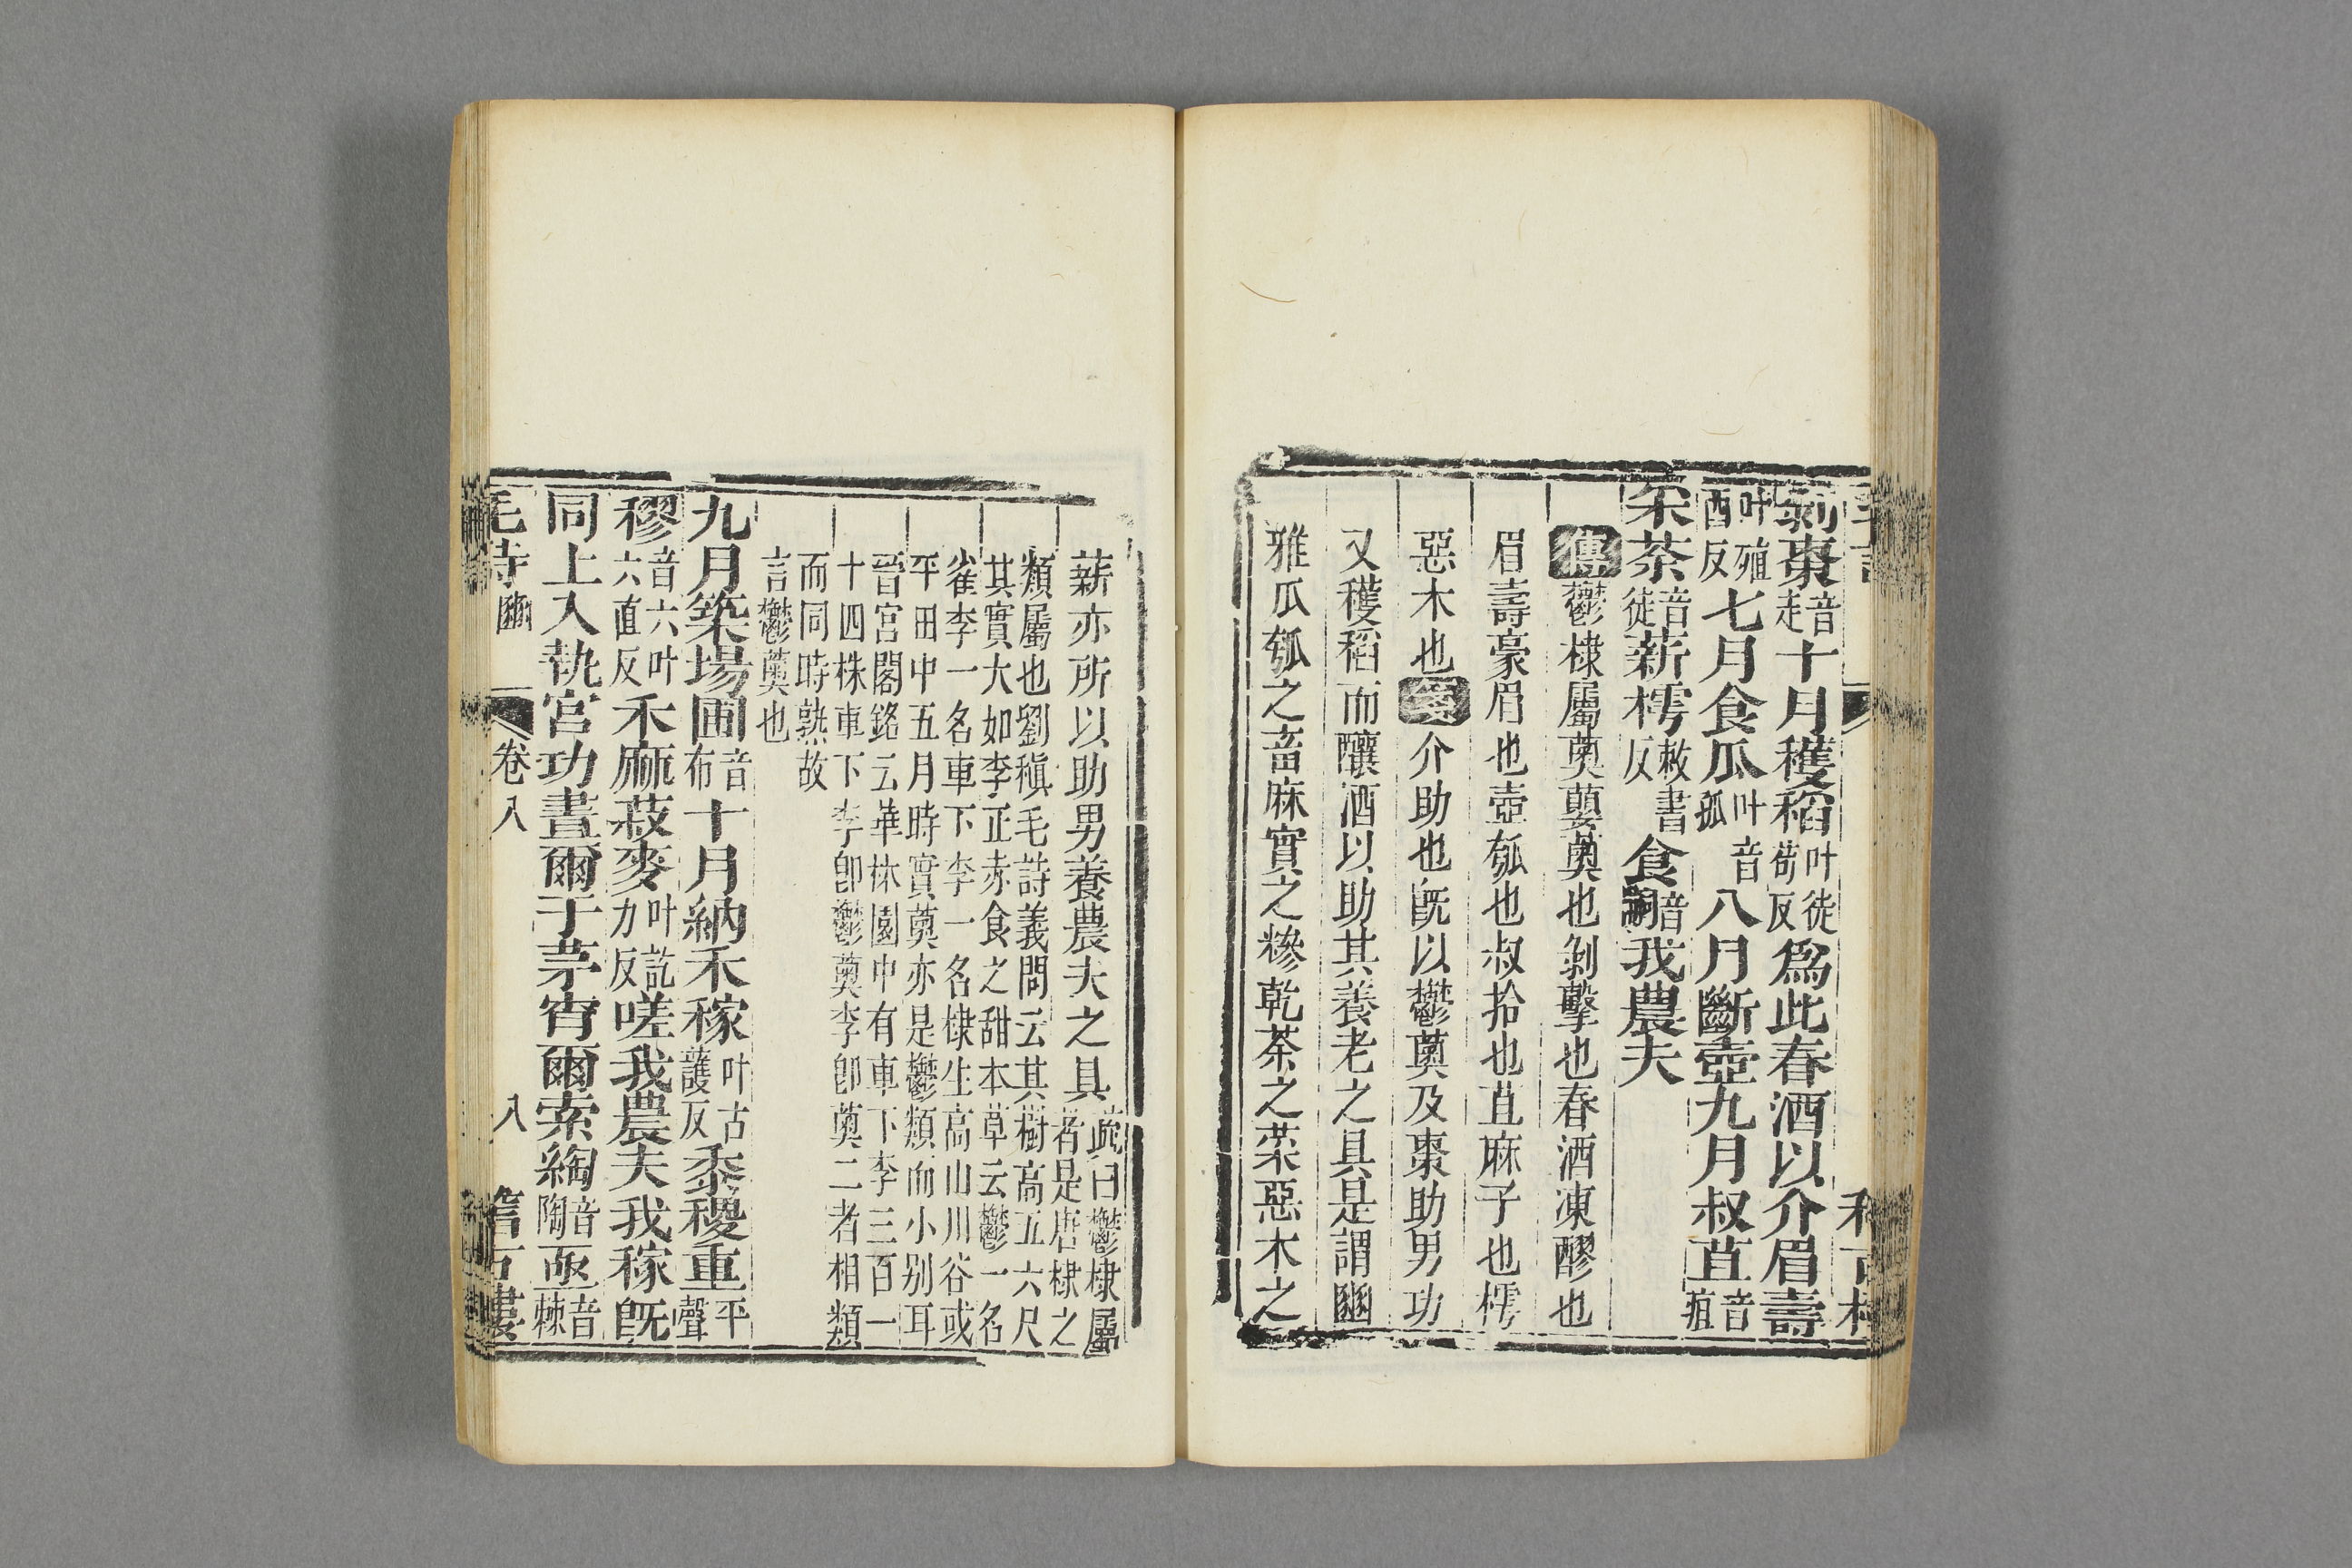 剝棗音走十月穫稻叶徒苟反爲此春酒以介眉壽
叶殖酉反七月食瓜叶音孤八月斷壺九月叔苴音疽
采荼音徒薪樗敕書反食音嗣我農夫
傳鬱棣屬薁蘡薁也剝擊也春酒凍醪也
眉壽豪眉也壺瓠也叔拾也苴麻子也樗
惡木也箋介助也既以鬱薁及棗助男功
又穫稻而釀酒以助其養老之具是謂豳
雅瓜瓠之畜麻實之糝乾荼之菜惡木之
薪亦所以助男養農夫之具疏曰鬱棣屬
者是唐棣之
類屬也劉稹毛詩義問云其樹高五六尺
其實大如李正赤食之甜本草云鬱一名
雀李一名車下李一名棣生高山川谷或
平田中五月時實薁亦是鬱類而小别耳
晉宮閣銘云華林園中有車下李三百一
十四株車下李卽鬱薁李卽薁二者相類
而同時熟故
言鬱薁也
九月築場圃音布十月納禾稼叶古護反黍稷重平聲
穋音六叶六直反禾麻菽麥叶訖力反嗟我農夫我稼既
同上入執宮功晝爾于茅宵爾索綯音陶亟音棘
毛詩 豳 卷八 八